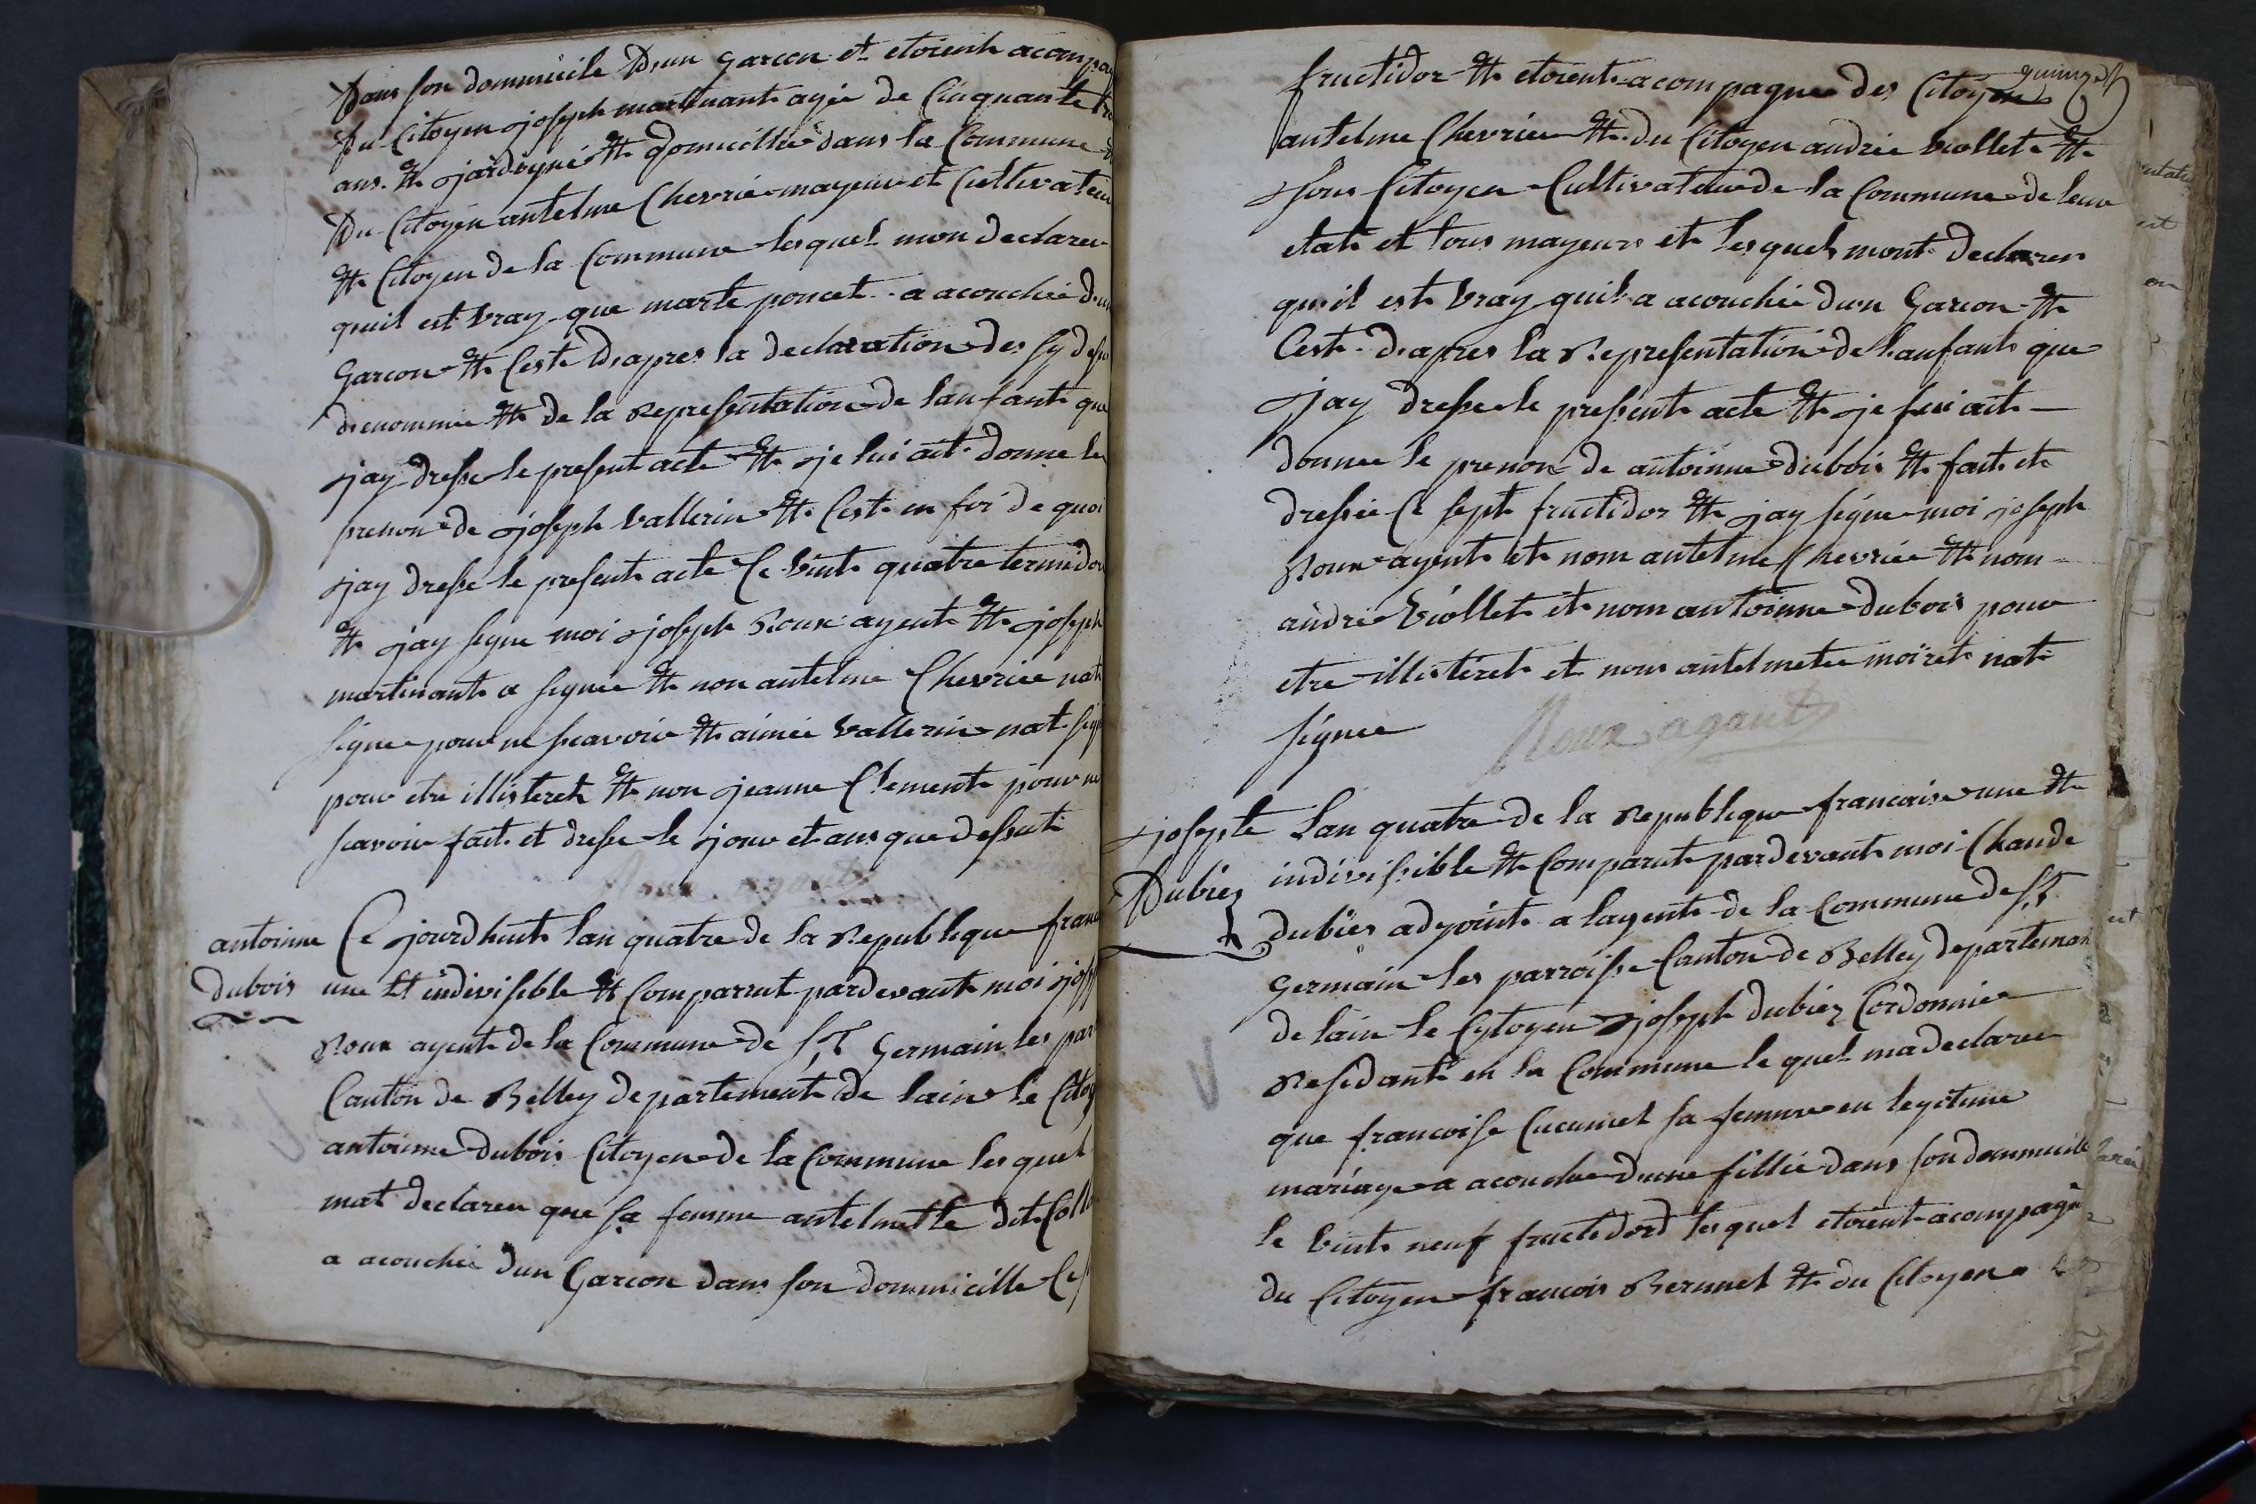 Dans son dommicile Dun garcon et etoient acompa
Du Citoyen joseph martinant agée de Cinquante
ans. et jardignié et domicillié dans la Commune
Du Citoyen antelme Chevrie mayeur et Cultivateur
et Citoyen de la Commune lesquel mon declarer
quil est vray que marte poncet a acouchée dun
Garcon et Cest Dapres la declaration des sy dess
denommée et de la Represintation de lanfant que
jay dresse le present acte et je lui ait donne le
prenon de joseph vallerin et Cest en foi de quoi
jay dresse le present acte Ce vint quatre termidor
et jay signe moi joseph Roux agent et joseph
martinant a signée et non antelme Chevrie nat
signe pour ne scavoir et aimée vallerin nat sign
pour etre illisteret et non jeanne Clement pour ne
scavoir fait et dresse le jour et ans que dessut
Roux agant
antoinne
dubois
Ce jourdhuit lan quatre de la Republique franc
une et indivisible et Comparrut pardevant moi jos
Roux agent de la Commune de St Germain les par
Canton de Belley departement de lain le Citoy
antoinne dubois Citoyen de la Commune lesquel
mat declarer que sa femme antelmette dit Coll
a acouchée dun Garcon dans son dommicille Ce
quinze
fructidor et etoient acompagnee des Citoyens
antelme Chevrier et du Citoyen andrie viollet et
tous Citoyen Cultivateur de la Commune de leur
etat et tous mayeurs et lesquels mont declarer
quil est vray quil a acouchée dun Garcon et
Cest dapres la Representation de lanfant que
Jay dresse le present acte et je lui ait
donnee le prenon de antoinne dubois et fait et
dressée Ce sept fructidor et jay signe moi joseph
Roux agent et nom antelme Chevrie et nom
andrie viollet et nom antoinne dubois pour
etre illisteret et nom antelmete moiret nat
signee
Roux agant
josepte
Dubiez
Lan quatre de la Republique francaise une et
indivissible et Comparut pardevant moi Claude
dubies adjoint a lagent de la Commune de St
Germain les parroisse Canton de Belley departeman
de lain le Cytoyen joseph dubiez Cordonnier
Residant en la Commune lequel ma declaree
que francoise Cucumel sa femme en legitime
mariage a acouchee dune fillie dans son dommicile
le vint neuf fructidord lesquel etoient acompagn
du Citoyen francois Berunet et du Citoyen